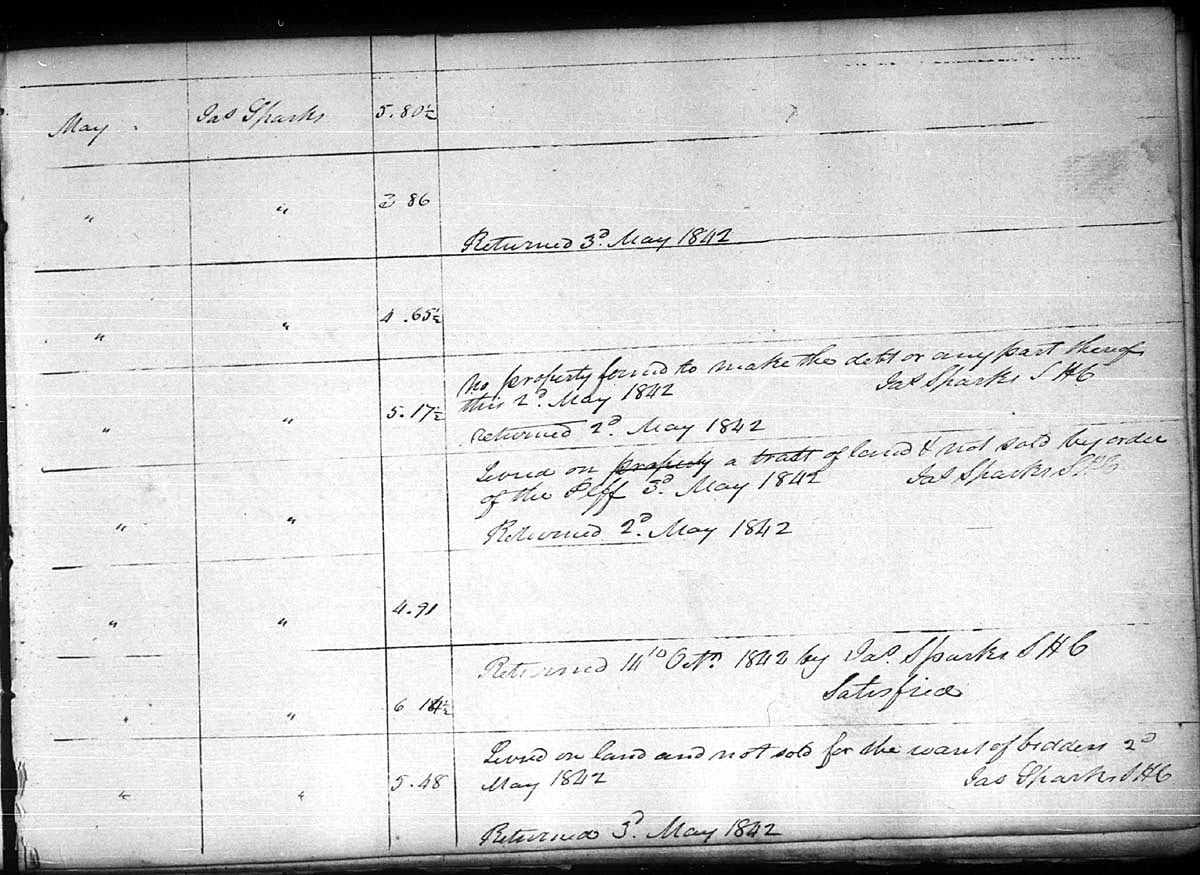 May Jas Sparks 5.80½
" " 3 86
Returned 3d May 1842
" " 4.65½
No property found to make the debt or any part thereof
this 2d May 1842 Jas Sparks S H C
" " 5.17½
returned 2d May 1842
Levied on property a tract of land & not sold by order
of the Plff 3d May 1842 Jas Sparks S.H.C
" "
Returned 2d May 1842
" " 4.91
Returned 14th Octr 1842 by Jas Sparks S H C
Satisfied
" " 6 14½
Levied on land and not sold for the want of bidders 2d
May 1842 Jas Sparks S H C
" " 5.48
Returned 3d May 1842